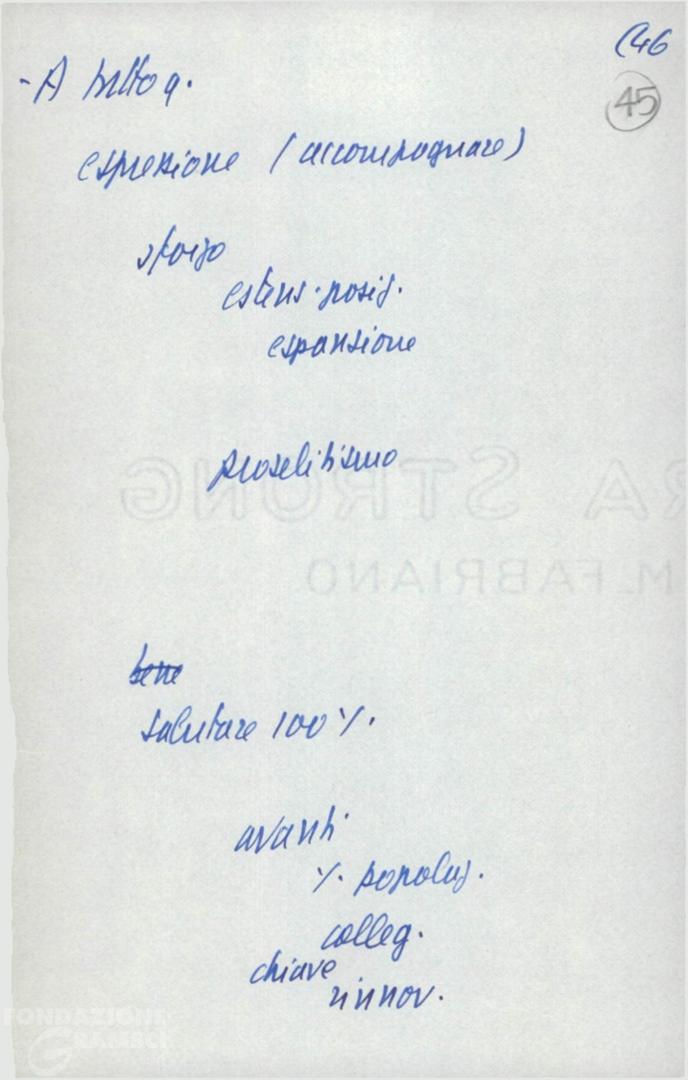 (46
45
- A tutto q.
espressione (accompagnare)
sforzo
estens. posiz.
espansione
proselitismo
bene
salutare 100%.
avanti
% popolaz.
colleg.
chiave
rinnov.
RA STRONG
M. FABRIANO
FONDAZIONE
GRAMSCI